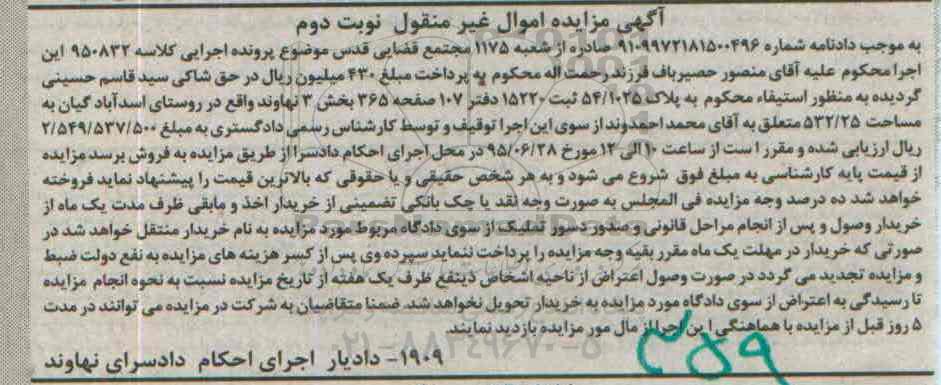 آگهی مزایده اموال غیر منقول نوبت دوم
به موجب دادنامه شماره ۹۱۰۹۹۷۲۱۸۱۵۰۰۴۹۶ صادره از شعبه ۱۱۷۵ مجتمع قضایی قدس موضوع پرونده اجرایی کلاسه ۹۵۰۸۳۲ این
اجرا محکوم علیه آقای منصور حصیرباف فرزند رحمت اله محکوم به پرداخت مبلغ ۴۳۰ میلیون ریال در حق شاکی سید قاسم حسینی
گردیده به منظور استیفاء محکوم به پلاک ۵۴/۱۰۲۵ ثبت ۱۵۲۲۰ دفتر ۱۰۷ صفحه ۳۶۵ بخش ۳ نهاوند واقع در روستای اسدآباد گیان به
مساحت ۵۳۲/۲۵ متعلق به آقای محمد احمدوند از سوی این اجرا توقیف و توسط کارشناس رسمی دادگستری به مبلغ ۲/۵۴۹/۵۳۷/۵۰۰
ریال ارزیابی شده و مقرر است از ساعت ۱۰ الی ۱۲ مورخ ۹۵/۰۶/۲۸ در محل اجرای احکام دادسرا از طریق مزایده به فروش برسد مزایده
از قیمت پایه کارشناسی به مبلغ فوق شروع می شود و به هر شخص حقیقی و یا حقوقی که بالاترین قیمت را پیشنهاد نماید فروخته
خواهد شد ده درصد وجه مزایده فی المجلس به صورت وجه نقد یا چک بانکی تضمینی از خریدار اخذ و مابقی ظرف مدت یک ماه از
خریدار وصول و پس از انجام مراحل قانونی و صدور دسور تملیک از سوی دادگاه مربوط مورد مزایده به نام خریدار منتقل خواهد شد در
صورتی که خریدار در مهلت یک ماه مقرر بقیه وجه مزایده را پرداخت ننماید سپرده وی پس از کسر هزینه های مزایده به نفع دولت ضبط
و مزایده تجدید می گردد در صورت وصول اعتراض از ناحیه اشخاص ذینفع ظرف یک هفته از تاریخ مزایده نسبت به نحوه انجام مزایده
تا رسیدگی به اعتراض از سوی دادگاه مورد مزایده به خریدار تحویل نخواهد شد. ضمنا متقاضیان به شرکت در مزایده می توانند در مدت
۵ روز قبل از مزایده با هماهنگی این اجرا از مال مور مزایده بازدید نمایند.
۱۹۰۹- دادیار اجرای احکام دادسرای نهاوند
۳۵۹
۰۲۱-۸۸۳۴۹۶۷۰-۵